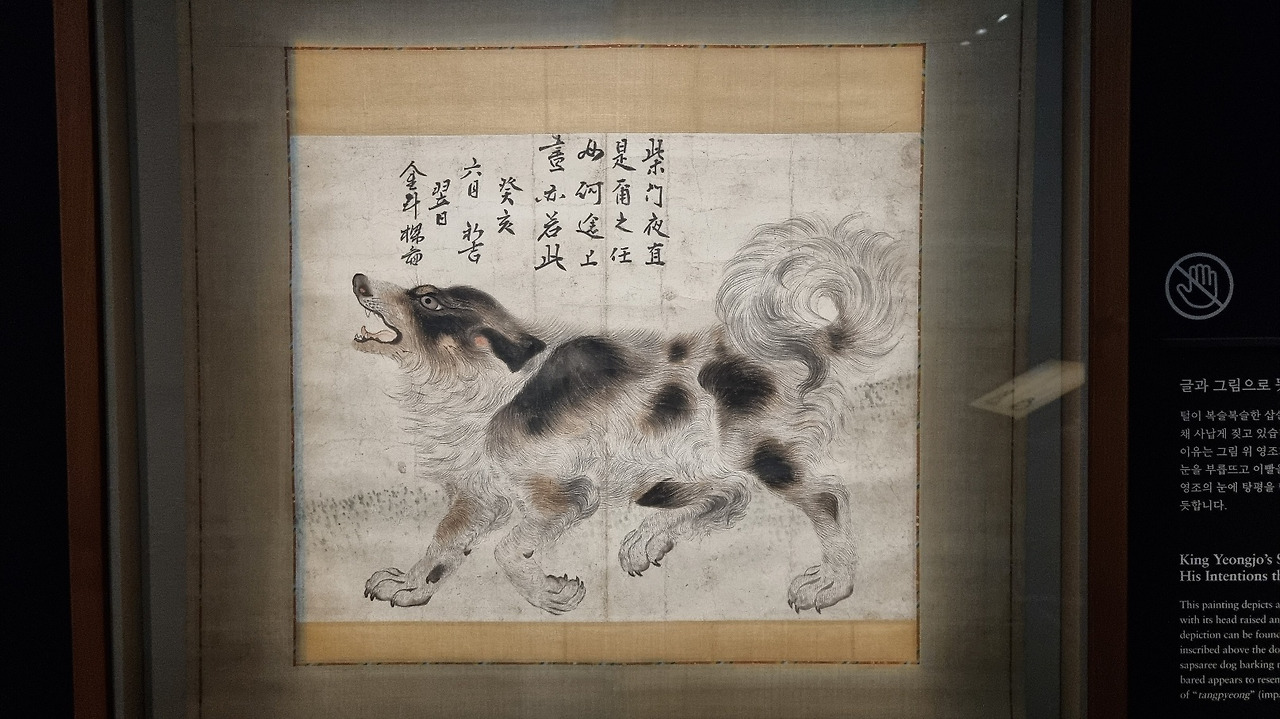 柴門夜直
是爾之任
如何途上
晝亦若此
癸亥
六月 初吉
翌日
金斗樑
글과 그림으로
털이 복슬복슬한
채 사납게 짖고
이유는 그림 위 영조
눈을 부릅뜨고
영조의 눈에 탕평을
듯합니다.
King Yeongjo's
His Intentions
This painting depicts a
with its head raised
depiction can be found
inscribed above the
sapsaree dog barking
bared appears to
of "tangpyeong"